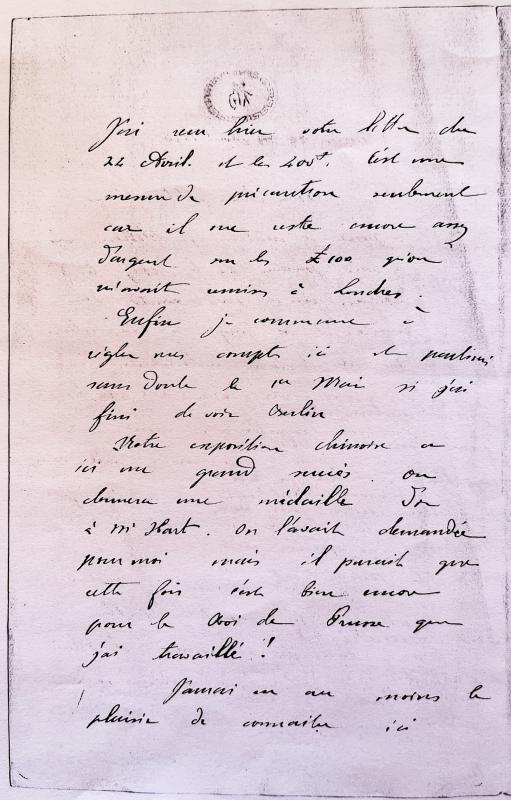 J'ai reçu hier votre lettre du
22 Avril. et les 400f. C'est une
mesure de précaution seulement
car il me reste encore assez
d'argent sur les £100 qu'on
m'avait remises à Londres.
Enfin je commence à
régler mes comptes ici et partirai
sans doute le 1er Mai si j'ai
fini de voir Berlin
Notre exposition chinoise a
ici un grand succès. On
donnera une médaille d'or
à Mr Hart. On l'avait demandée
pour moi mais il parait que
cette fois c'est bien encore
pour le Roi de Prusse que
j'ai travaillé !
J'aurai eu au moins le
plaisir de connaitre ici